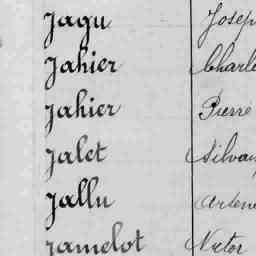 Jagu Josep
Jahier Charle
Jahier Pierre
Jalet Silvai
Jallu Arsène
Jamelot Victor